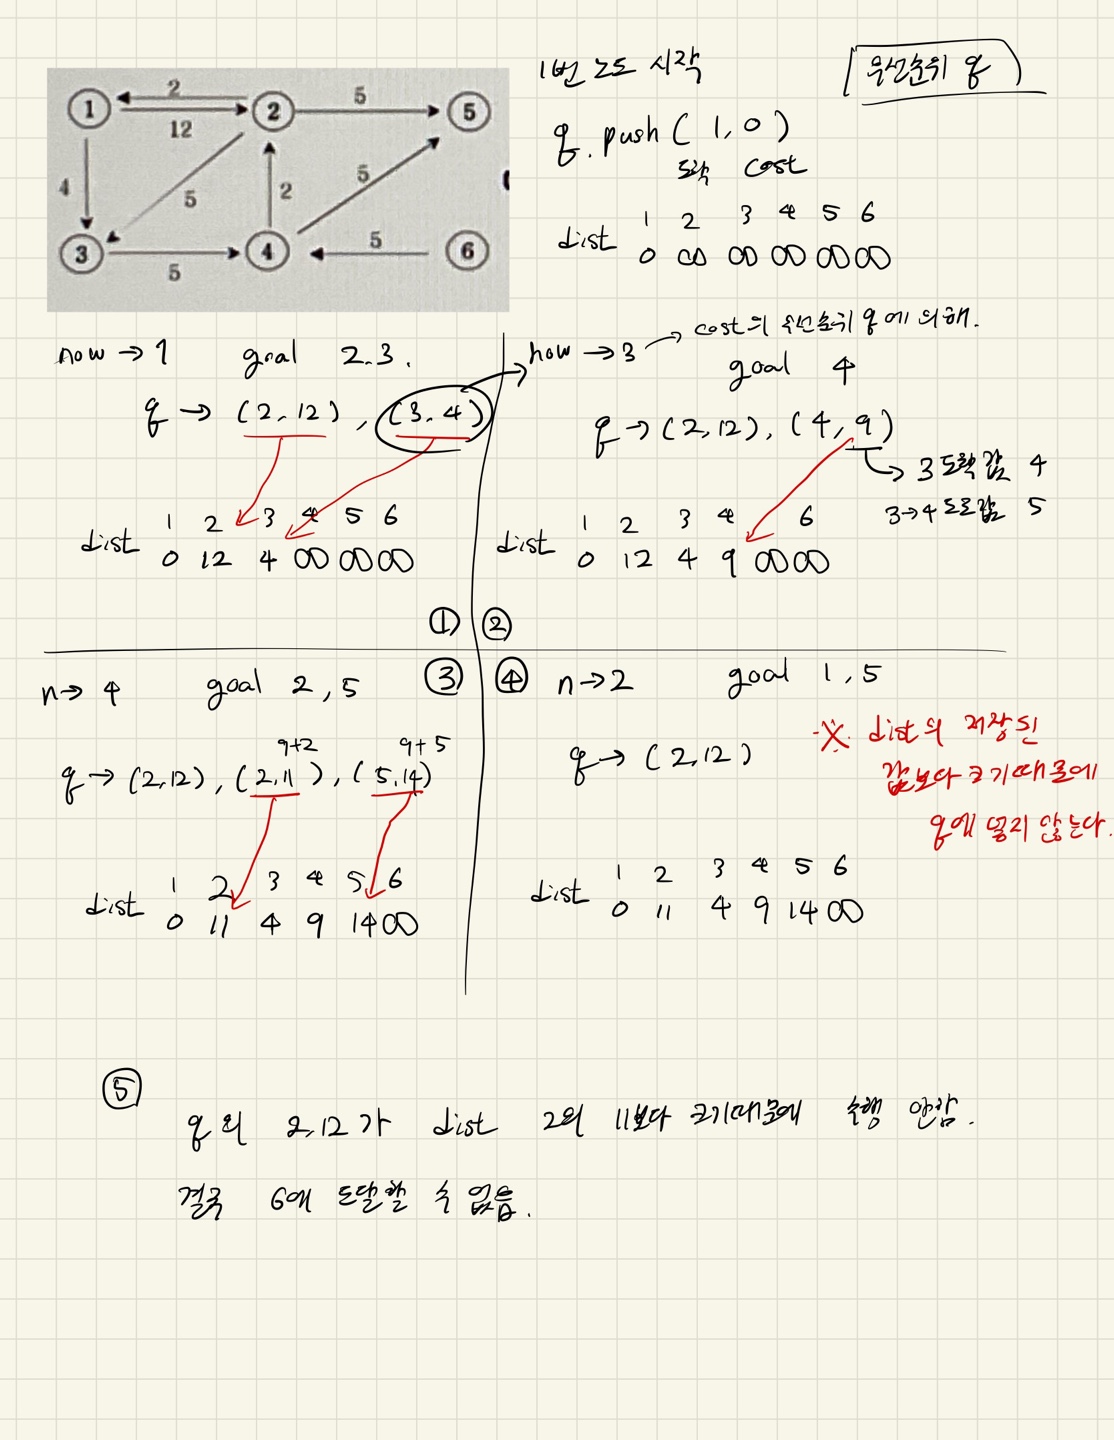 1번 노드 시작
우선순위 q
q. push ( 1, 0 )
도착 cost
1 2 3 4 5 6
dist 0 ∞ ∞ ∞ ∞ ∞
1 2 5
2 12
4 5 2 5
3 5 4 5 6
now → 1 goal 2.3.
q → (2, 12) , (3. 4)
1 2 3 4 5 6
dist 0 12 4 ∞ ∞ ∞
①
now → 3 → cost의 우선순위 q에 의해.
goal 4
q → (2, 12), (4, 9)
→ 3 도착값 4
3→4 도로값 5
1 2 3 4 6
dist 0 12 4 9 ∞ ∞
②
n → 4 goal 2, 5 ③
9+2 9+5
q → (2,12), (2,11), (5,14)
1 2 3 4 5 6
dist 0 11 4 9 14 ∞
④ n → 2 goal 1, 5
q → (2, 12)
※ dist의 저장된
값보다 크기때문에
q에 넣지 않는다.
1 2 3 4 5 6
dist 0 11 4 9 14 ∞
⑤
q의 2,12가 dist 2의 11보다 크기때문에 수행 안함.
결국 6에 도달할 수 없음.